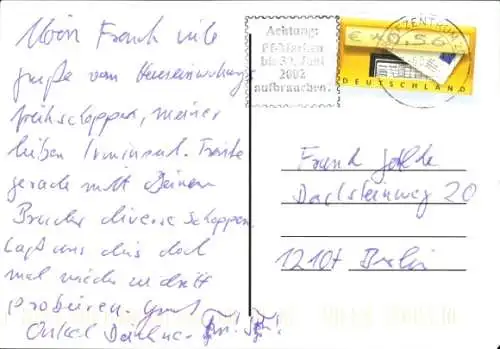 Moin Frank viele
grüße vom Hauseinweihungs
frühschoppen, meiner
lieben Irmintrud. Trinke
gerade mit Deinem
Bruder diverse Schoppen.
Laßt uns dies doch
mal wieder zu dritt
probieren. Gruß
Onkel
Achtung:
PF-Marken
bis 30. Juni
2002
aufbrauchen.
€ *0,56
DEUTSCHLAND
Frank
Dachsteinweg 20
12107 Berlin